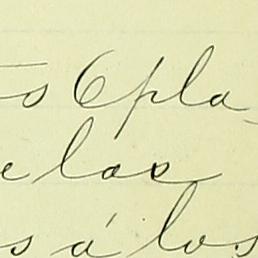 s Opla-
e las
s á los